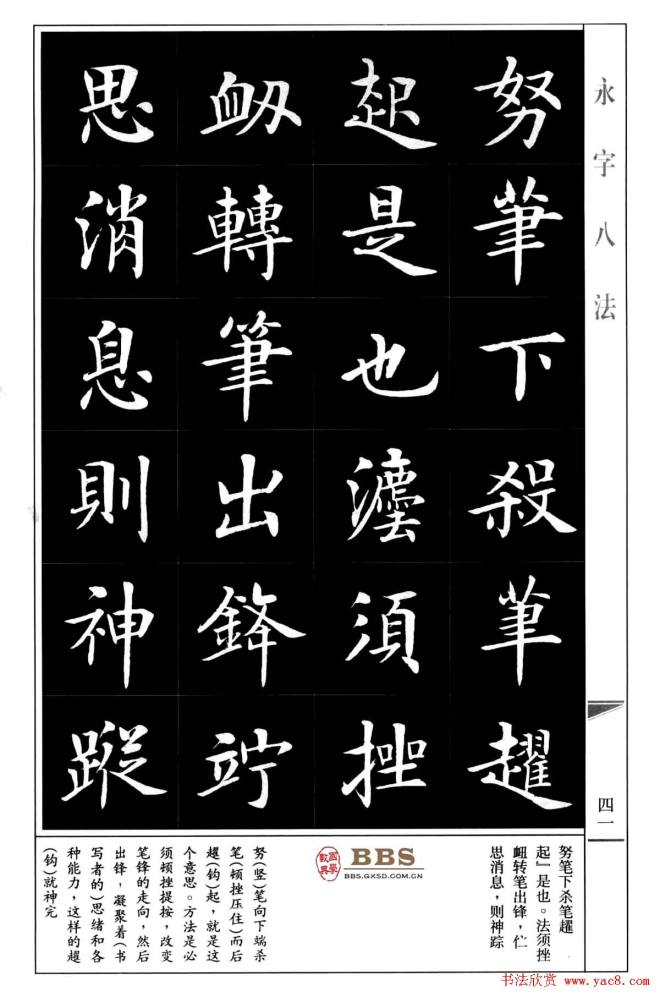 永字八法
努筆下殺筆趯
起是也法須挫
衄轉筆出鋒竚
思消息則神蹤
四一
努笔下杀笔趯
起』是也。法须挫
衄转笔出锋，伫
思消息，则神踪
BBS
BBS.GXSD.COM.CN
努(竖)笔向下端杀
笔(顿挫压住)而后
趯(钩)起，就是这
个意思。方法是必
须顿挫提按，改变
笔锋的走向，然后
出锋，凝聚着(书
写者的)思绪和各
种能力，这样的趯
(钩)就神完
书法欣赏 www.yac8.com